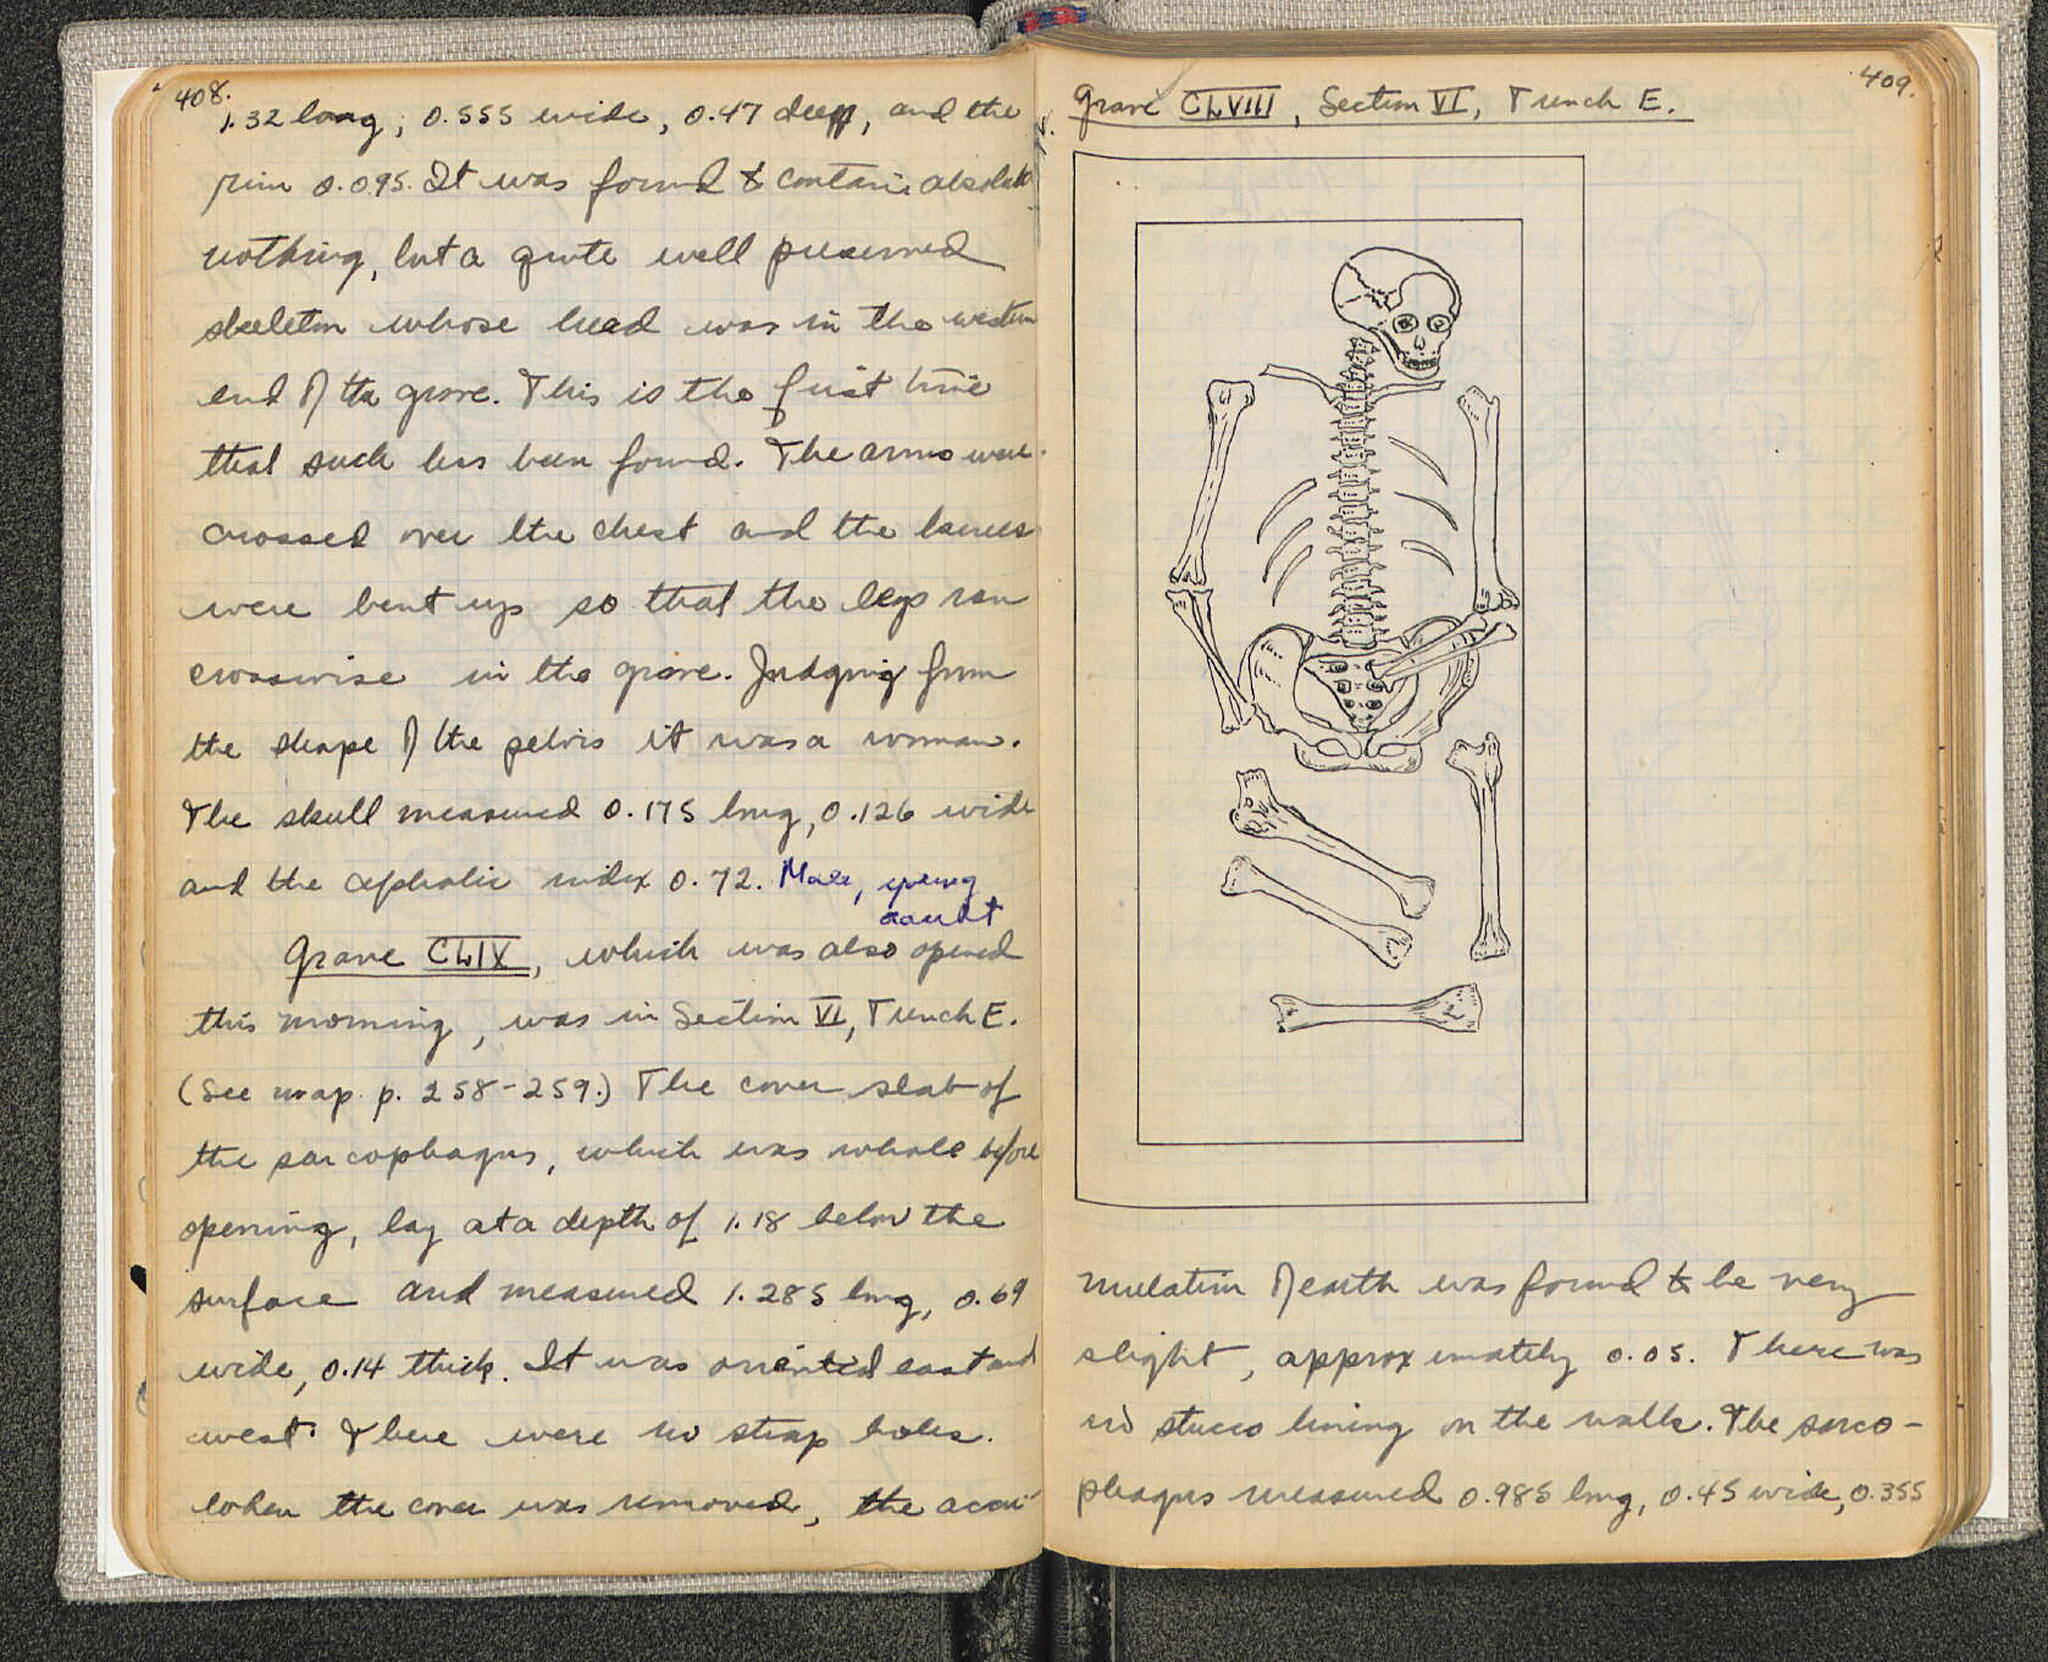 408.
1.32 long, 0.555 wide, 0.47 deep, and the
rim 0.095. It was found to contain absolute
nothing, but a quite well preserved
skeleton whose head was in the western
end of the grave. This is the first time
that such has been found. The arms were
crossed over the chest and the knees
were bent up so that the legs ran
crosswise in the grave. Judging from
the shape of the pelvis it was a woman.
The skull measured 0.175 long, 0.126 wide
and the cephalic index 0.72. Male, young
adult
Grave CLIX, which was also opened
this morning, was in Section VI, Trench E.
(See map p. 258-259.) The cover slab of
the sarcophagus, which was whole before
opening, lay at a depth of 1.18 below the
surface and measured 1.285 long, 0.69
wide, 0.14 thick. It was oriented east and
west. There were no strap holes.
When the cover was removed, the accu-
409.
Grave CLVIII, Section VI, Trench E.
mulation of earth was found to be very
slight, approximately 0.05. There was
no stucco lining on the walls. The sarco-
phagus measured 0.985 long, 0.45 wide, 0.355